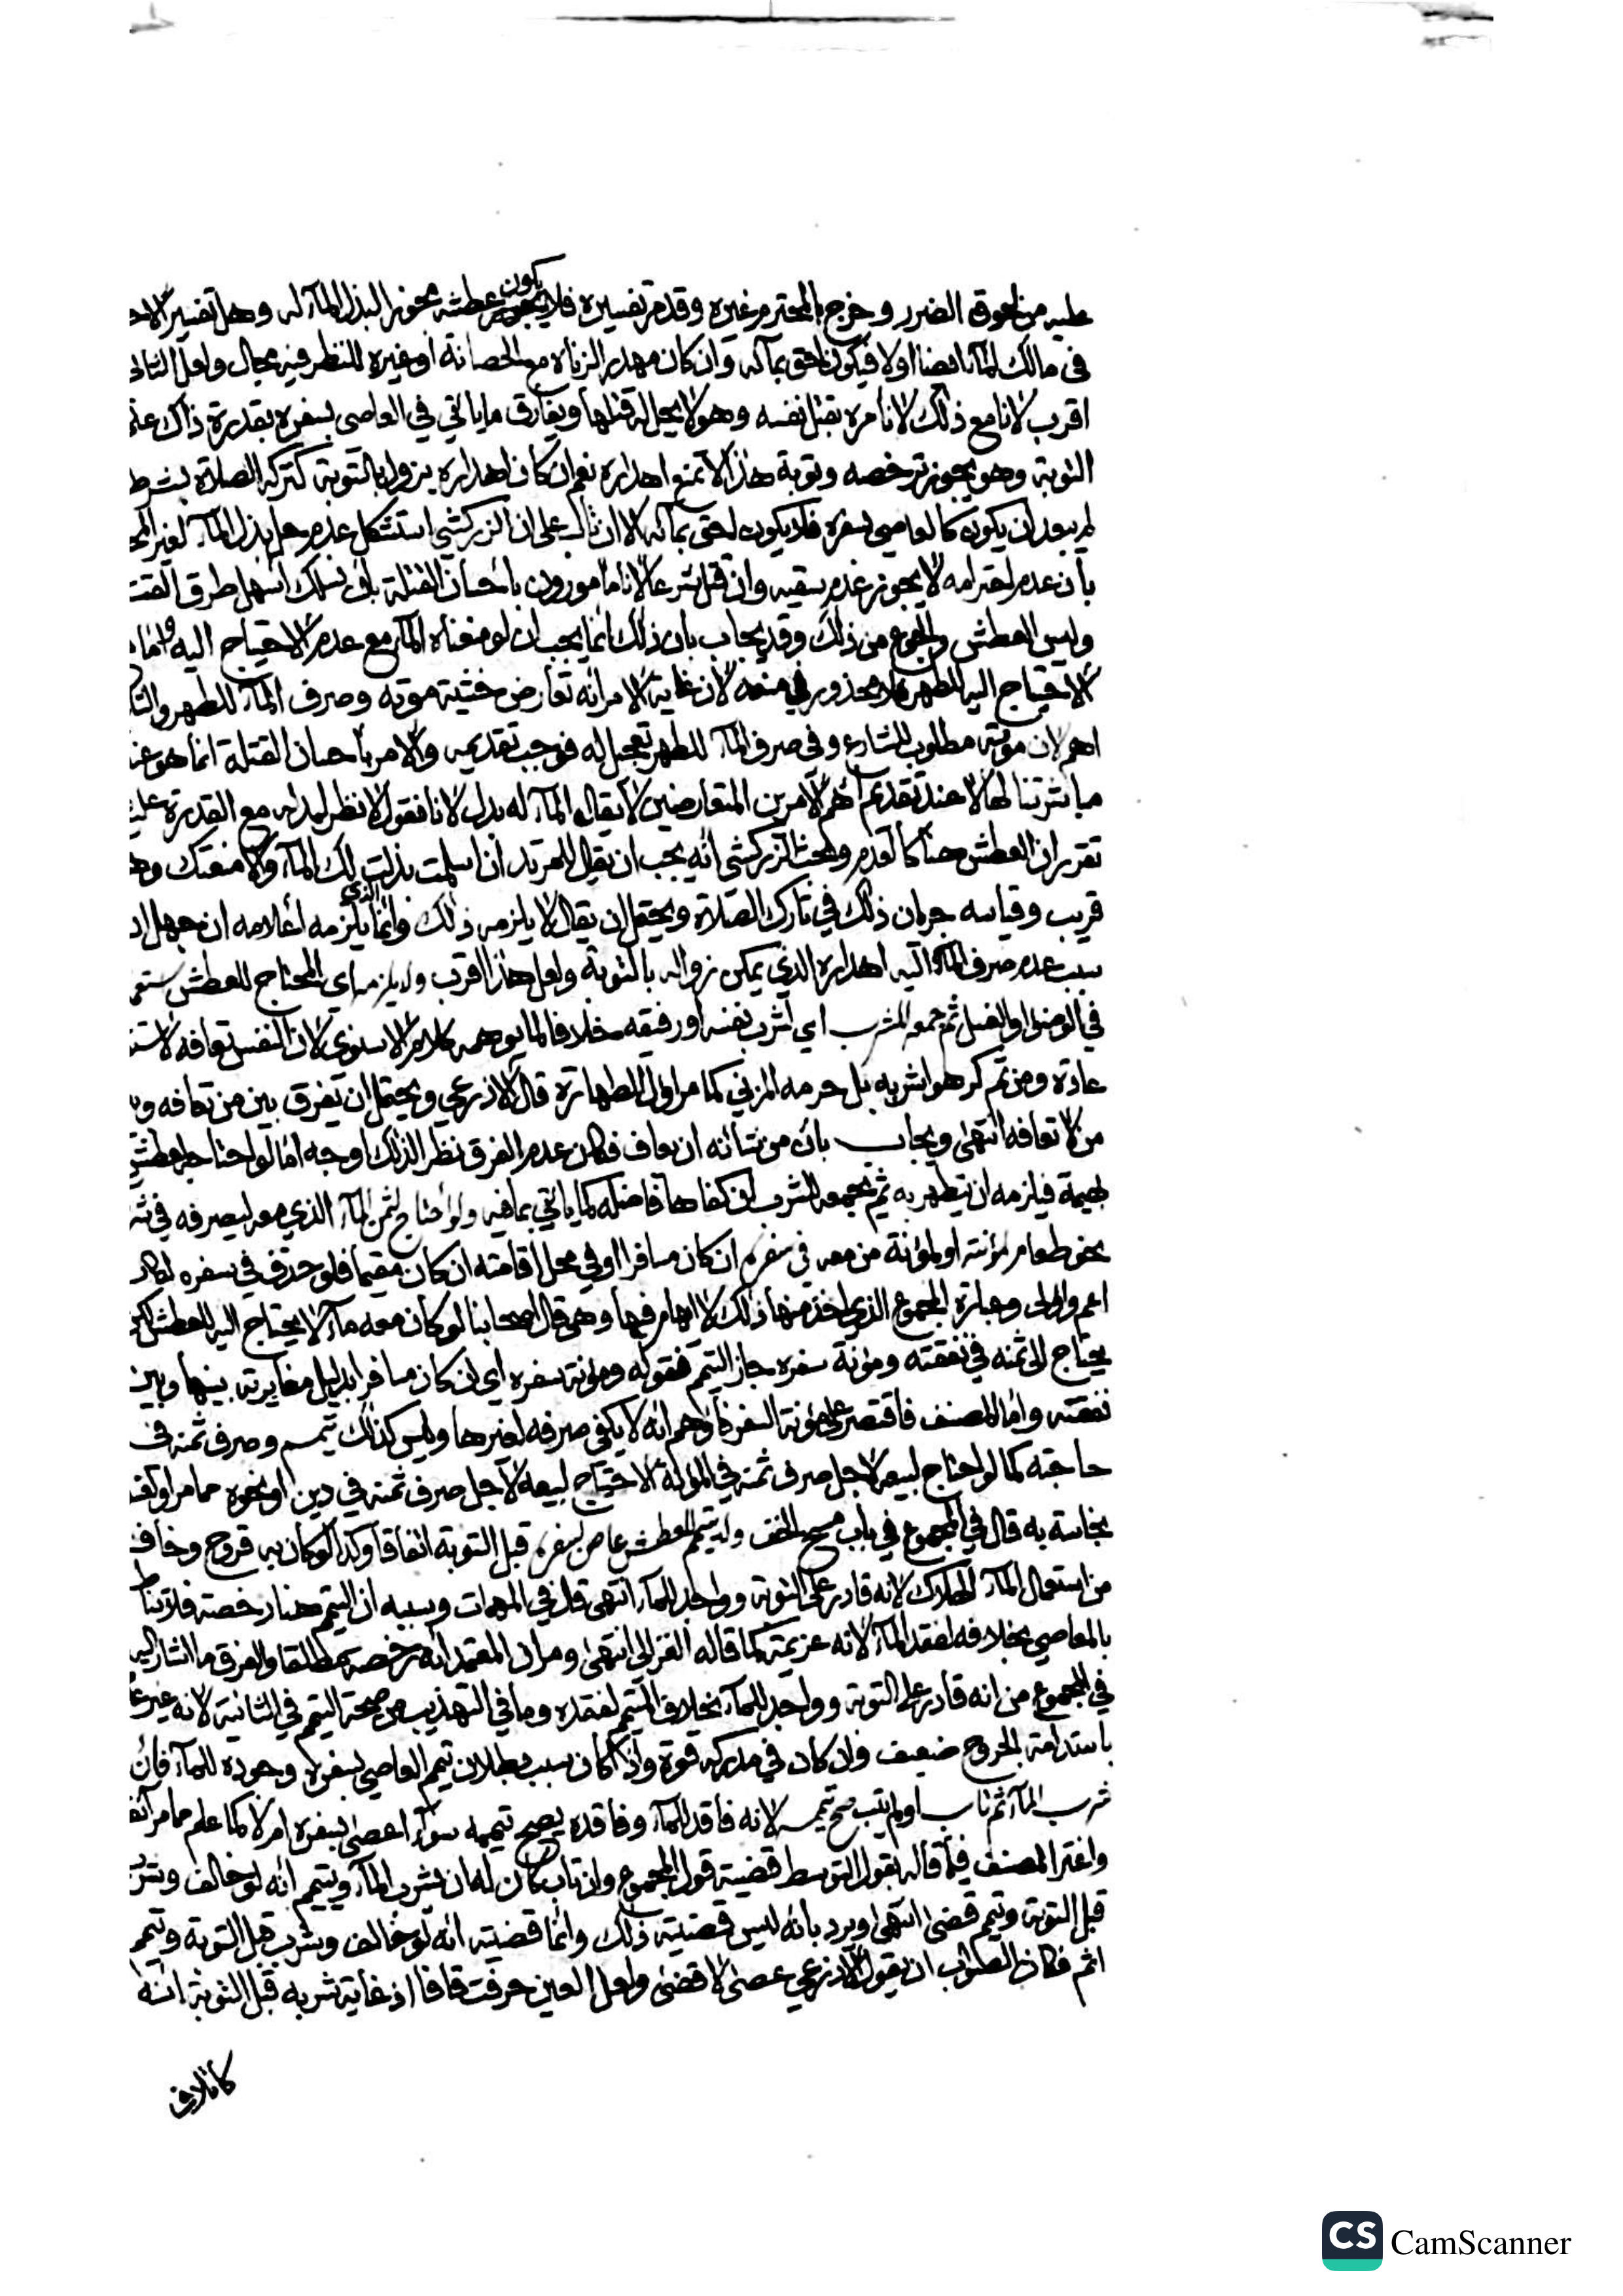 عليه من لحوق الضرر وخرج بالمحترم غيره وقد مر تفسيره فلا يكون عطشه مجوزا لبذل الماء له وهل تفسير الاحـ
في مالك الماء ايضا اولا فيكون احق بمائه وان كان مهدرا لزناه مع الحصانة او غيره للنظر فيه مجال ولعل الثاني
اقرب لانا مع ذلك لا نأمره بقتل نفسه وهو لا يحل له قتلها ويفارق ما يأتي في العاصي بسفره بقدرة ذاك على
التوبة وهو يجوز ترخصه وتوبة هذا لا تمنع اهداره نعم ان كان اهداره يزول بالتوبة كتركه الصلاة بشرط
لم يبعد ان يكون كالعاصي بسفره فلا يكون احق بمائه الا ان تاب على ان الزركشي استشكل عدم حل بذل الماء لغير المحـ
بأن عدم احترامه لا يجوز عدم سقيه وان قتل شرعا لانا مأمورون باحسان القتلة بان نسلك اسهل طرق القتـ
وليس العطش والجوع من ذلك وقد يجاب بان ذلك انما يجب ان لو منعناه الماء مع عدم الاحتياج اليه واما مـ
الاحتياج اليه للطهر فلا محذور في منعه لان غاية الامر انه تعارض خشية موته وصرف الماء للطهر والثا
اهم لان موته مطلوب للشارع وفي صرف الماء للطهر تعجيل له فوجب تقديمه والامر باحسان القتلة انما هو عند
مباشرتنا لها لا عند تقديم اهم الامرين المتعارضين لا يقال الماء له بدل لانا نقول لا نظر لبدله مع القدرة عليه
تقرر ان العطش هنا كالعدم وبحث الزركشي انه يجب ان يقال للمرتد ان اسلمت بذلت لك الماء والا منعتك وهـ
قريب وقياسه جريان ذلك في تارك الصلاة ويحتمل ان يقال لا يلزمه ذلك وانما الذي يلزمه اعلامه ان جهل ان
سبب عدم صرف الماء اليه اهداره الذي يمكن زواله بالتوبة ولعل هذا اقرب ولا يلزمه اي المحتاج للعطش ستعمـ
في الوضوء او الغسل ثم جمعه لشرب اي لشرب نفسه او رفيقه خلافا لما يوهمه كلام الاسنوي لان النفس تعافه لاستـ
عادة ومن ثم كره هو اشربه بل حرمه المزني كما مر اول الطهارة قال الاذرعي ويحتمل ان يفرق بين من تعافه و
من لا تعافه انتهى ويجاب بان من شأنه ان يعاف فكان عدم الفرق نظرا لذلك اوجه اما لو احتاجه لعطش
بهيمة فيلزمه ان يتطهر به ثم يجمعه لشرب ان كفاها فاضله كما يأتي بما فيه ولو احتاج ثمن الماء الذي معه ليصرفه في
نحو طعام لمؤنته او لمؤنة من معه في سفره ان كان مسافرا او في محل اقامته ان كان مقيما فلو حذف في سفره لكان
اعم واولى وعبارة المجموع الذي اخذ منها ذلك لا ايهام فيها وهي قال اصحابنا لو كان معه ماء لا يحتاج اليه للعطش لكن
يحتاج الى ثمنه في نفقته ومؤنة سفره جاز التيمم فقوله ومؤنة سفره اي ان كان مسافرا بدليل مغايرته بينها وبين
نفقته واما المصنف فاقتصر على مؤنة السفر فاوهم انه لا يكفي صرفه لغيرها وليس كذلك تيمم وصرف ثمنه في
حاجته كما لو احتاج لبيعه لاجل صرف ثمنه في المؤنة الاحتياج لبيعه لاجل صرف ثمنه في دين او نحوه مما مر او لغسـ
نجاسة به قال في المجموع في باب مسح الخف ولا يتيمم لعطش عاص بسفره قبل التوبة اتفاقا وكذا لو كان به قروح وخاف
من استعمال الماء الهلاك لانه قادر على التوبة وواجد للماء انتهى قال في المهمات وسببه ان التيمم هنا رخصة فلا تناط
بالمعاصي بخلافه لفقد الماء لانه عزيمة كما قاله الغزالي انتهى ومر ان المعتمد انه رخصة مطلقا والفرق ما اشار اليه
في المجموع من انه قادر على التوبة وواجد للماء بخلاف التيمم لفقده وما في التهذيب من صحة التيمم في الثانية لانه غير عا
باستدامة الجروح ضعيف وان كان في مدركه قوة واذا كان سبب بطلان تيمم العاصي بسفره وجوده للماء فان
شرب الماء ثم تاب او لم يتب صح تيممه لانه فاقد للماء وفاقده يصح تيممه سواء اعصى بسفره ام لا كما علم مما مر آنفا
واغتر المصنف فيما قاله بقول المتوسط قضية قول المجموع وان تاب كان له ان يشرب الماء ويتيمم انه لو خالف وشرب
قبل التوبة وتيمم قضى انتهى ويرد بانه ليس قضيته ذلك وانما قضيته انه لو خالف وشرب قبل التوبة وتيمم
اثم فكان الصواب ان يقول الاذرعي عصى لا قضى ولعل العين حرفت قافا اذ غاية شربه قبل التوبة انه
كاتلاف
CS CamScanner